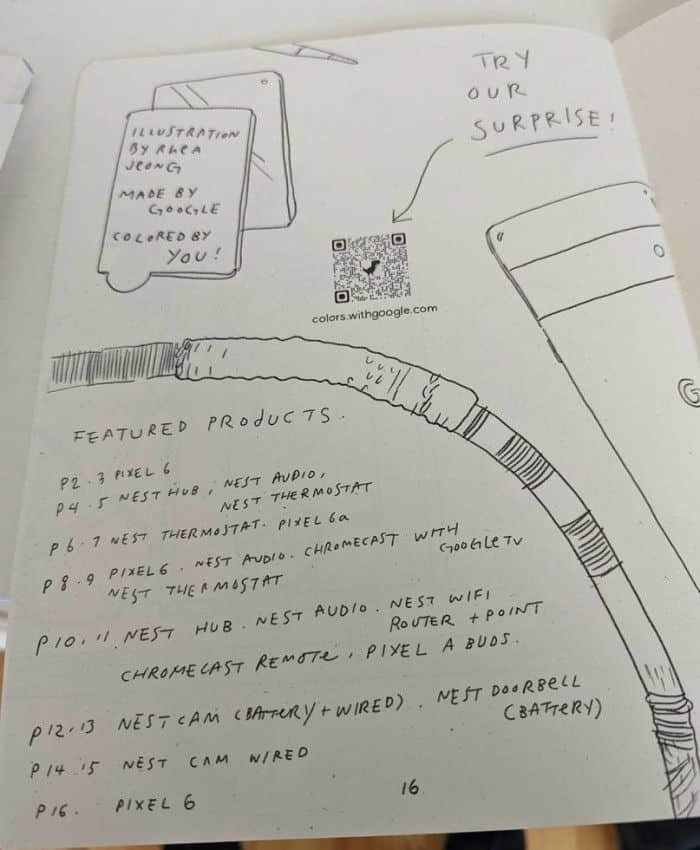 ILLUSTRATION
BY RHEA
JEONG
MADE BY
GOOGLE
COLORED BY
YOU!
TRY
OUR
SURPRISE!
colors.withgoogle.com
FEATURED PRODUCTS.
P2.3 PIXEL 6
P4.5 NEST HUB, NEST AUDIO,
NEST THERMOSTAT
P6.7 NEST THERMOSTAT. PIXEL 6a
P8.9 PIXEL 6. NEST AUDIO. CHROMECAST WITH
GOOGLE TV
NEST THERMOSTAT
P10.11. NEST HUB. NEST AUDIO. NEST WIFI
ROUTER + POINT
CHROMECAST REMOTE, PIXEL A BUDS.
P12.13 NEST CAM (BATTERY + WIRED). NEST DOORBELL
(BATTERY)
P14.15 NEST CAM WIRED
P16. PIXEL 6
16
G